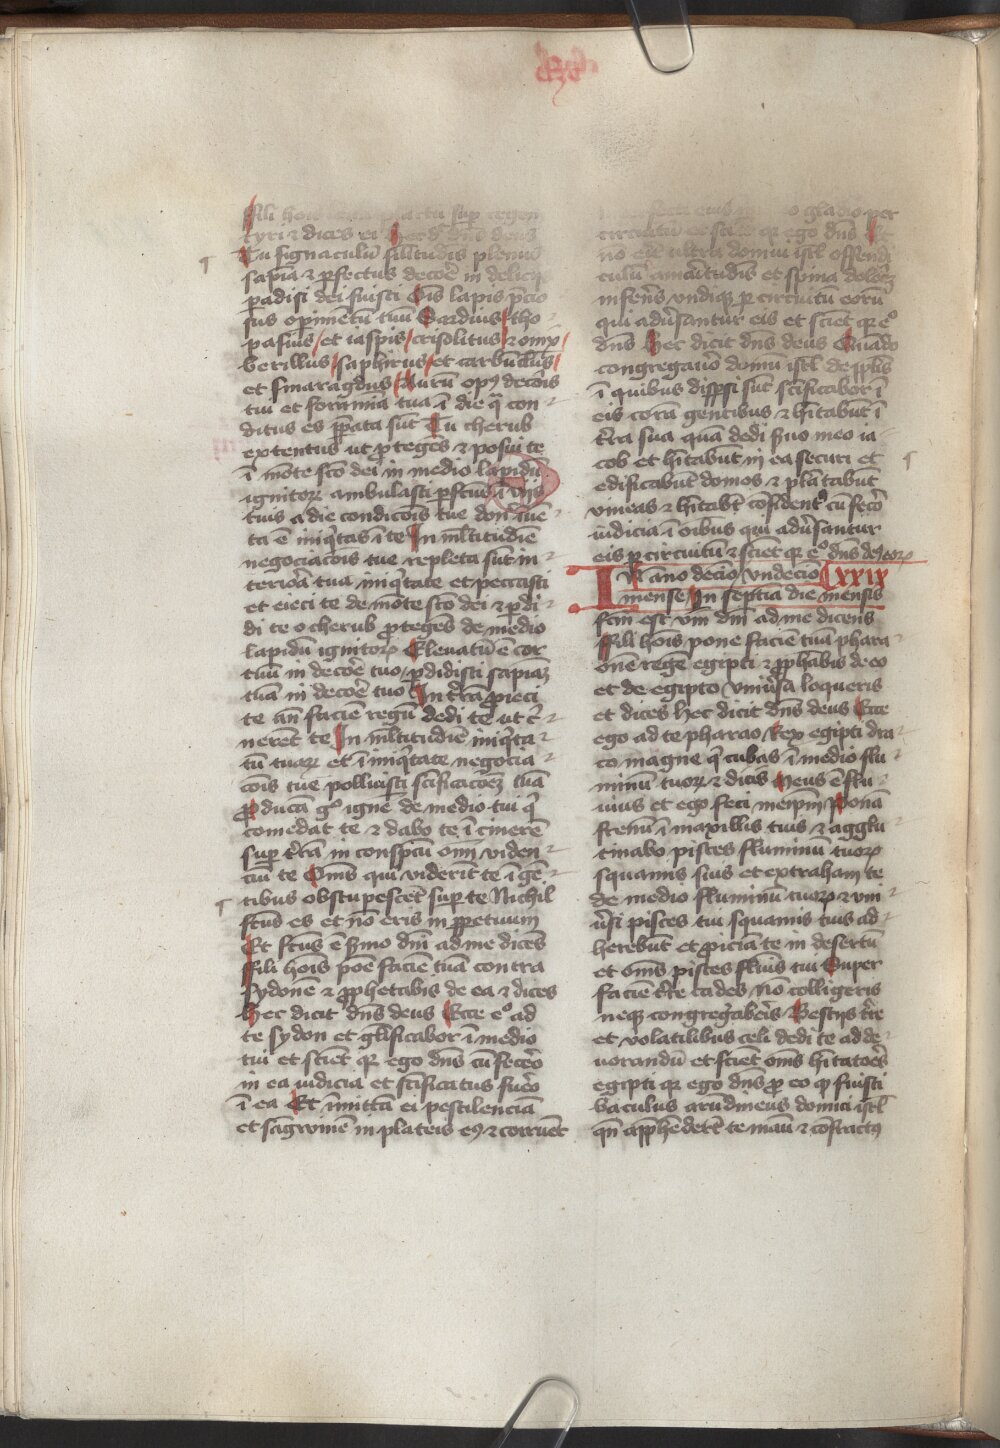 Ezech
Fili hois leva planctū sup regem
tyri ⁊ dices ei hec d dns deus
Tu signaculū silitudīs plenus
sapia ⁊ pfectus decoē in deliciis
padisi dei fuisti Oīs lapis pcio
sus opimētū tuū Sardius tho
pasius et iaspis crisolitus ⁊ onix
berillus saphirus et carbūculus
et smaragdus Aurū opꝰ decoris
tui et foramīa tua ī die qͣ con
ditus es ppata sūt Tu cherub
extentus ut ptegēs ⁊ posui te
ī mōte sco dei in medio lapidū
ignitoꝝ ambulasti pfctus ī viis
tuis a die condicoīs tue donͨ īue
ta ē iniqͥtas ī te In mltitudīe
negociacoīs tue repleta sūt in
teriora tua iniqͥtate et peccasti
et eieci te de mōte sco dei ⁊ pdi
di te o cherub ptegēs de medio
lapidū ignitoꝝ Elevatū ē cor
tuū in decoē tuo pdidisti sapiaꝫ
tuā in decoē tuo In trā pieci
te an faciē regū dedi te ut cͣ
nerēt te In mltitudīe iniqͥta
tū tuaꝝ et ī iniqͥtate negocia
coīs tue polluisti scificacoēꝫ tuā
Pducā gͦ ignē de medio tui qͥ
comedat te ⁊ dabo te ī cinerē
sup trā in conspcū oīm viden
ciū te Oms qui viderīt te ī gē
tibus obstupescēt sup te Nichil
fctus es et nō eris in ppetuum
Et fctus ē smo dni ad me dicēs
Fili hois poē faciē tuā contra
sydonē ⁊ pphetabis de ea ⁊ dices
hec dicit dns deus Ecce eͦ ad
te sydon et glificabor ī medio
tui et scīet qꝛ ego dns cū fecēo
in ea iudicia et scificatus fuēo
ī ea Et īmittā ei pestilenciā
et sāgwinē in plateis eꝰ ⁊ corruēt
gladio per
circuitū et scīet qꝛ ego dns Et
nō erit ultra domui isrl offendi
culū amaritudīs et spina dolorē
inferēs undiqꝫ p circuitū eorū
qui adūsantur eis et scīet qꝛ eͦ
dns Hec dicit dns deus Quādo
congregavō domū isrl de pplis
ī quibus dispsi sūt scificabor ī
eis corā gentibus ⁊ hītabūt ī
tra sua quā dedi suo meo ia
cob et hītabūt in ea securi et
edificabūt domos ⁊ plātabūt
vineas ⁊ hītabūt cōfidentͬ cū fecēo
iudicia ī oībus qui adūsantur
eis p circuitū ⁊ scīet qꝛ eͦ dns dꝰ eoꝝ
IN āno decīo undecīo XXIX
mense In septīa die mensis
fcm est vm dni ad me dicens
Fili hois pone faciē tuā phara
onē regē egipti ⁊ pphabis de eo
et de egipto univsa loqueris
et dices hec dicit dns deus Ecce
ego ad te pharao Rex egipti dra
co magne qͥ cubas ī medio flu
minū tuoꝝ ⁊ dicis Meus ē flu
vius et ego feci meipm Ponā
frenū ī maxillis tuis ⁊ agglu
tinabo pisces fluminū tuoꝝ
squamis tuis et extraham te
de medio fluminū tuoꝝ ⁊ uni
vsi pisces tui squamis tuis ad
herebūt et piciā te in desertū
et oms pisces flūis tui Super
faciē tre cades nō colligeris
neqꝫ congregaberis Bestiis tre
et volatilibus celi dedi te ad de
vorandū et scīet oms hītatoēs
egipti qꝛ ego dns p eo qꝫ fuisti
baculus arūdineus domui isrl
qn apphēderūt te manū ⁊ cōfractꝰ